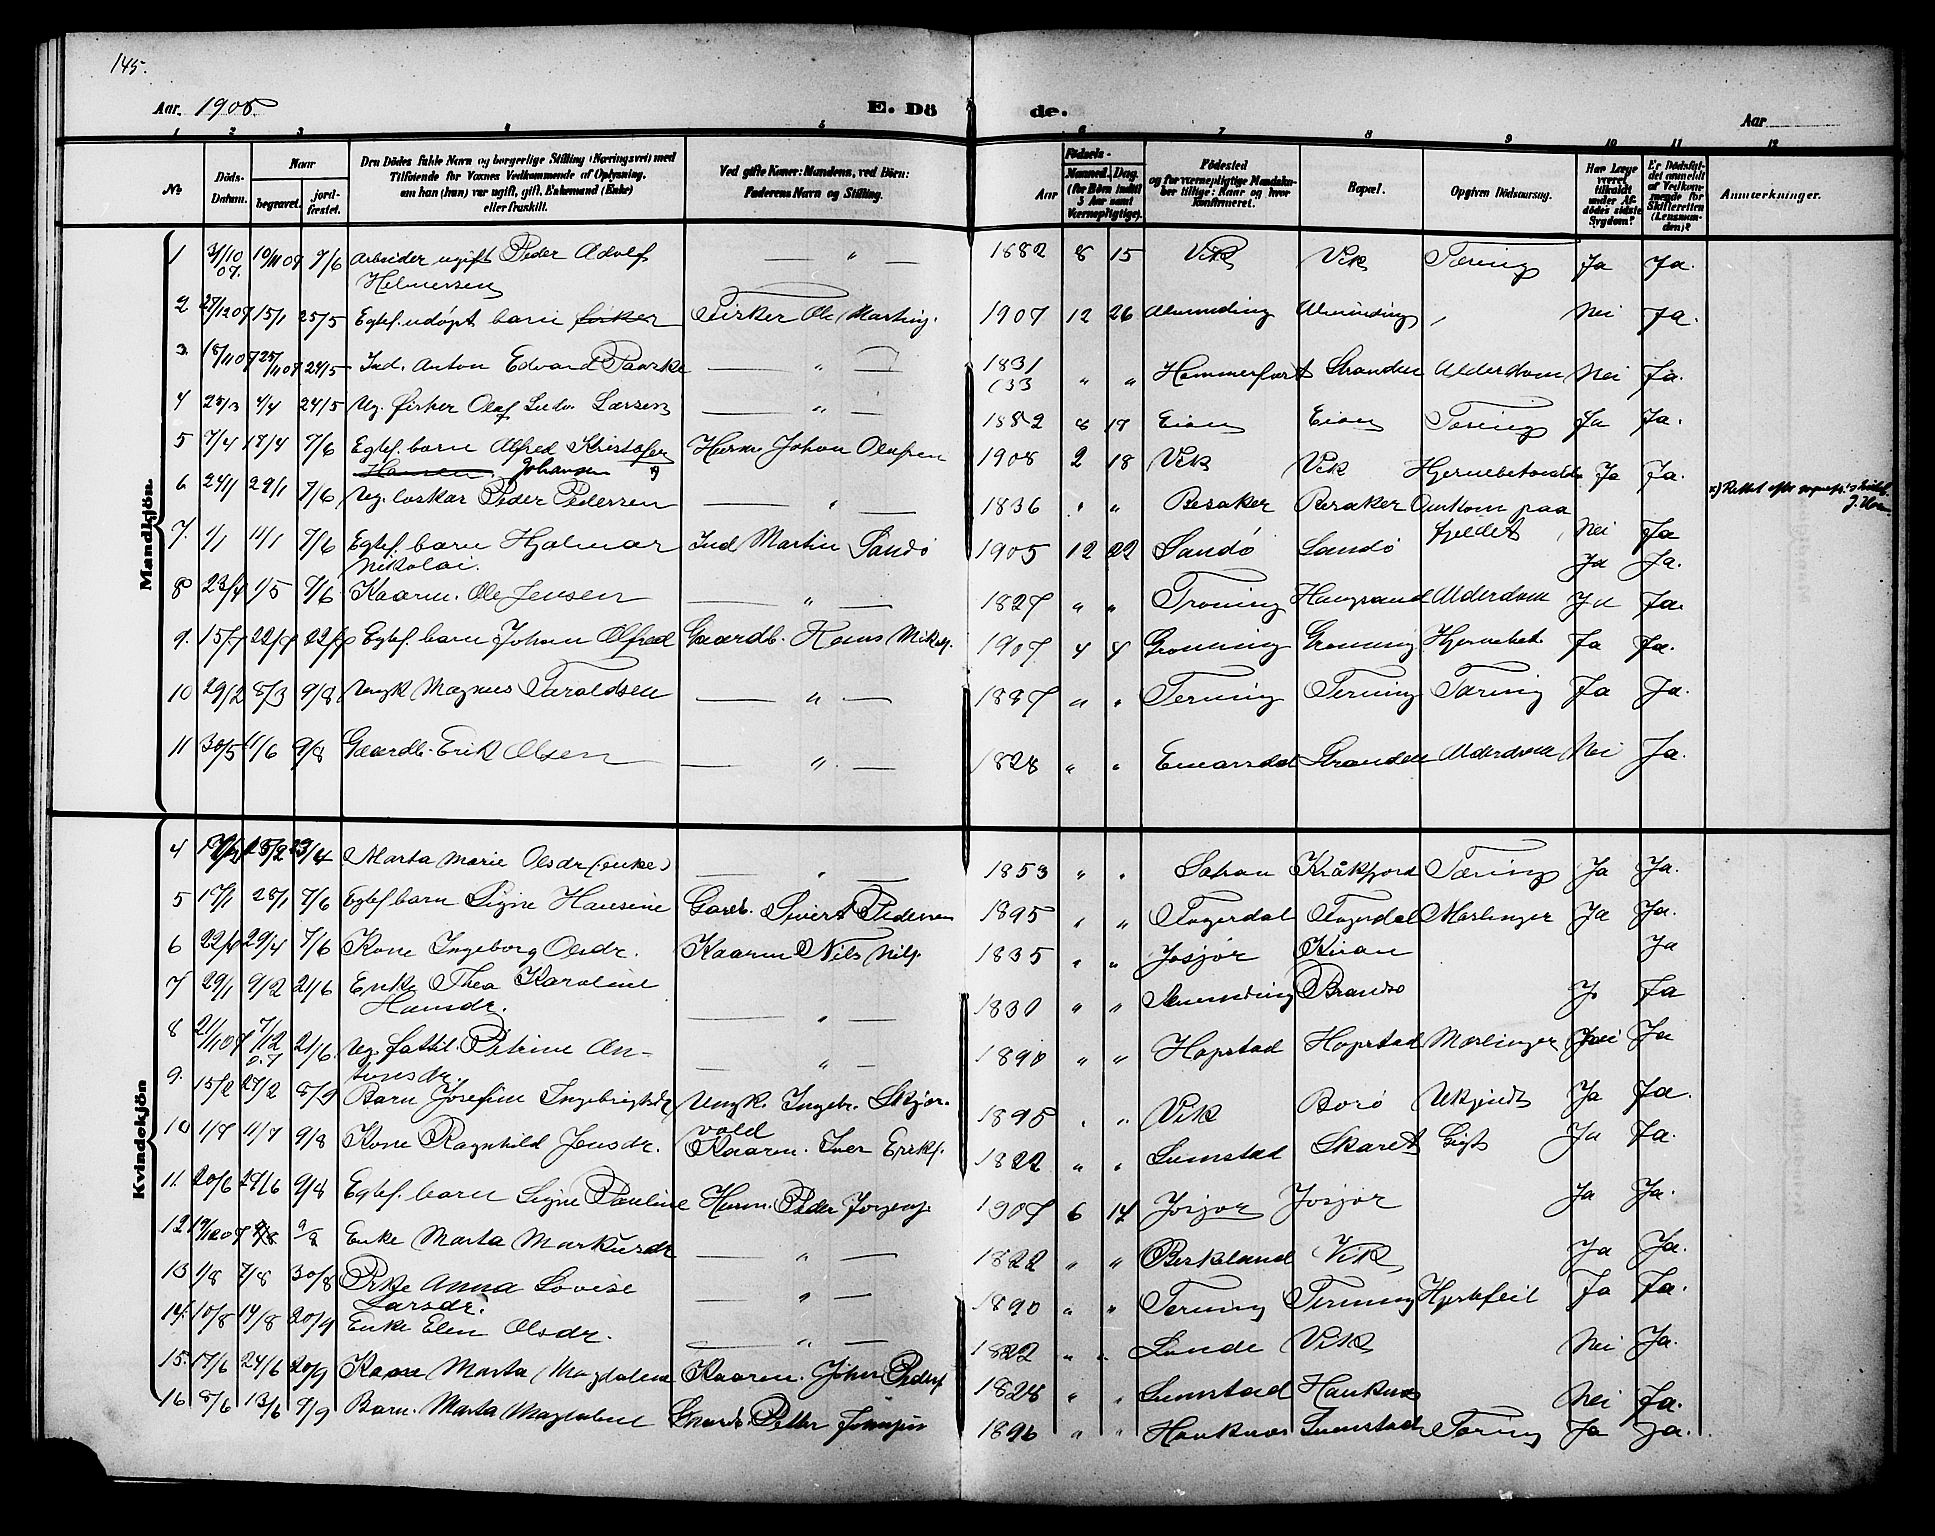 145.
Aar. 1908. E. Dö de. Aar
1 2 3 4 5 6 7 8 9 10 11 12
No Döds-Datum. Naar begravet. jordfæstet. Den Dödes fulde Navn og borgerlige Stilling (Næringsvei) med Tilföiende for Voxnes Vedkommende af Oplysning, om han (hun) var ugift, gift, Enkemand (Enke) eller fraskilt. Ved gifte Koner: Mandens, ved Börn: Faderens Navn og Stilling. Aar Födsels- Maaned. Dag. (for Börn indtil 5 Aar samt Værnepligtige). Födested og for værnepligtige Mandskaber tillige: Naar og hvor konfirmeret. Bopæl. Opgiven Dödsaarsag. Har Læge været tilkaldt under Afdödes sidste Sygdom? Er Dödsfaldet anmeldt af Vedkommende for Skifteretten (Lensmanden)? Anmærkninger.
Mandkjön.
1 31/10 07. 10/11 07 7/6 Arbeider ugift Peder Adolf Helmersen — " — 1882 8 15 Vik Vik Tæring Ja Ja.
2 27/12 07 15/1 25/5 Egtef. udöpt barn fisker Fisker Ole Marting. 1907 12 26 Almending Almending , Nei Ja.
3. 18/11 07 25/11 07 24/5 Ind. Anton Edvard Paaske — " — 1831 (33 " " Hammerfest Stranden Alderdom Nei Ja.
4 25/3 4/4 24/5 Ug. fisker Olaf Ludv. Larsen — " — 1882 8 17 Eion Eion Tæring Ja Ja.
5 7/4 17/4 7/6 Egtef. barn Alfred Kristofer Hansen Johansen Husm. Johan Olufsen 1908 2 18 Vik Vik Hjernebetænd. Ja Ja. x) Rettet efter
6 24/1 29/1 7/6 Ug. loskar Peder Pedersen — " — 1836 " " Besaker Besaker Omkom paa fjeldet Nei Ja
7. 1/1 11/1 7/6 Egtef. barn Hjalmar Nikolai. Ind Martin Sandö 1905 12 22 Sandö Sandö Ja Ja.
8 23/4 1/5 7/6 Kaarm. Ole Jensen — " — 1827 " " Terning Alderdom Ja Ja.
9. 15/7 22/7 22/7 Egtef. barn Johan Alfred Gaardb. Hans Nikol. 1907 4 4 Gronning Gronning Hjernebet. Ja Ja.
10 29/2 8/3 9/8 Ungk Magnus Taraldsen — " — 1887 " " Terning Terning Tæring Ja Ja.
11 30/5 11/6 9/8 Gaardb. Erik Olsen — " — 1828 " " Einarsdal Stranden Alderdom Nei Ja.
Kvindekjön
4 25/2 23/4 Marta Marie Olsdr (enke) — " — 1853 " " Sætran Kråkfjord Tæring Ja Ja.
5 17/1 28/1 7/6 Egtef barn Signe Hansine Gardb. Sivert Pedersen 1895 " " Fagerdal Fagerdal Mæslinger Ja Ja.
6 22/4 29/4 7/6 Kone Ingeborg Olsdr. Kaarm Nils Nils. 1835 " " Jösjör Kiran Ja
7 29/1 9/2 21/6 Enke Thea Karoline Hansdr. — " — 1830 " " Brandsö Ja Ja
8 21/11 07 7/12 07 21/6 Ug. fattil. Petrine Antonsdr. — " — 1890 " " Hopstad Hopstad Mæslinger Ja
9. 15/2 27/2 8/9 Barn Josefine Ingebrigtsdr Ungk. Ingebr. Skjærvold 1895 " " Vik Borö Ukjendt Ja Ja.
10 1/7 11/7 9/8 Kone Ragnhild Jensdr. Kaarm. Iver Eriks. 1822 " " Sumstad Skaret Gigt Ja Ja.
11. 20/6 29/6 9/8 Egtef. barn Signe Pauline Husm. Peder Jörgens. 1907 6 14 Jösjör Jösjör Ja Ja.
12 19/12 07 9/8 Enke Marta Markusdr — " — 1822 " " Berkeland Vik Ja Ja.
13 1/8 7/8 30/8 Pike Anna Lovise Larsdr. — " — 1890 " " Terning Terning Hjertefeil Ja Ja.
14. 10/8 14/8 20/9 Enke Elen Olsdr. — " — 1822 " " Lunde Vik Nei Ja.
15. 17/6 24/6 20/9 Kaare Marta Magdalena Kaarm. Johan Peders 1828 " " Sumstad Hauknes Nei Ja.
16 8/6 13/6 9/9 Barn. Marta Magdalene Petter 1896 " " Hauknes Sumstad Tæring Ja Ja.